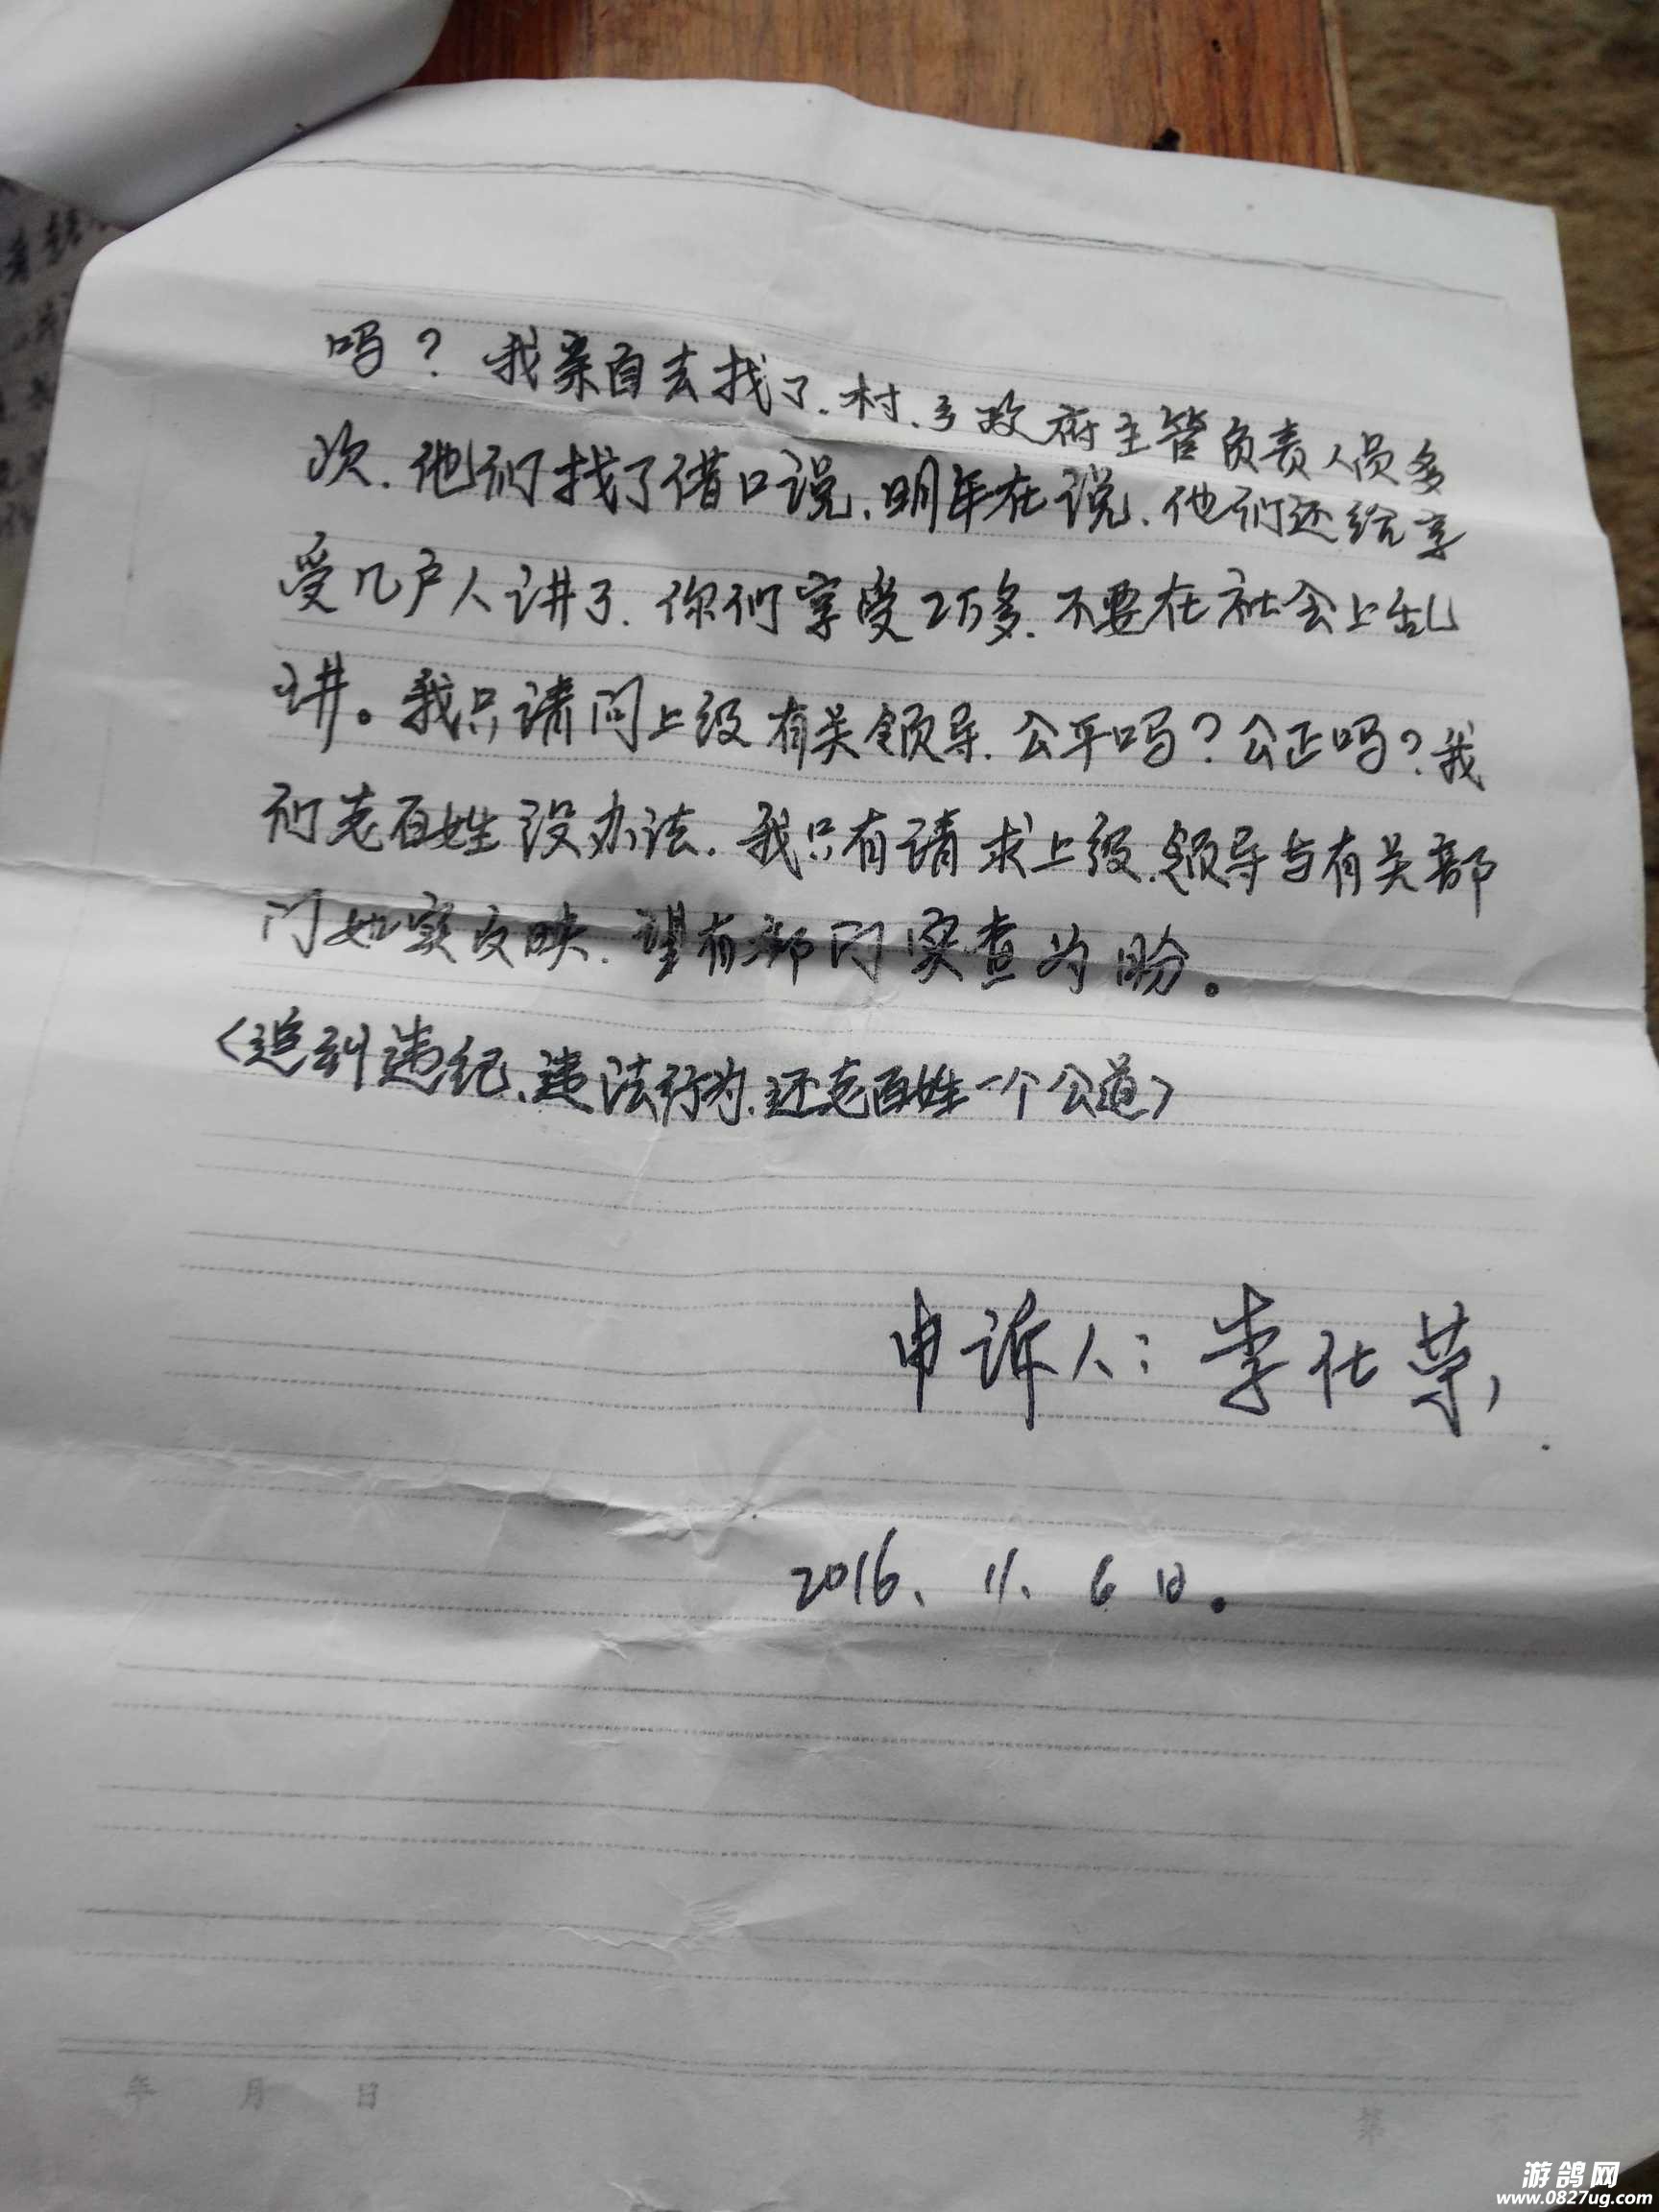 吗？我亲自去找了.村.乡政府主管负责人员多
次.他们找了借口说.明年在说.他们还给享
受几户人讲了.你们享受2万多.不要在社会上乱
讲。我只请问上级有关领导.公平吗？公正吗？我
们老百姓没办法.我只有请求上级.领导与有关部
门如实反映.望有部门实查为盼。
<追纠违纪、违法行为.还老百姓一个公道>
申诉人：李仕荣,
2016、11、6日。
年 月 日
第 页
游鸽网
www.0827ug.com